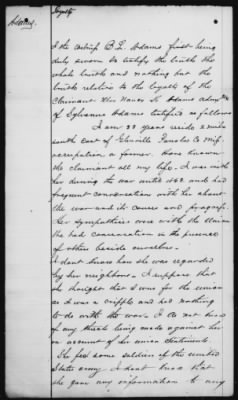 Loyalty
Adams
I the witness B. L. Adams first being
duly sworn to testify the truth the
whole truth and nothing but the
truth relative to the loyalty of the
Claimant Mrs Nancy K Adams admx
of Sylvanus Adams testified as follows
I am 33 years reside 2 miles
south east of Panola Co Miss
occupation, a farmer. Have known
the claimant all my life. I was with
her during the war until 1863 and had
frequent conversations with her about
the war and its causes and progress.
Her sympathies were with the Union
She had conversation in the presence
of others beside ourselves.
I dont know how she was regarded
by her neighbors. I suppose that
she thought that I was for the union
as I was a cripple and had nothing
to do with the war. I do not know
of any threats being made against her
on account of her union sentiments.
She fed some soldiers of the united
States army. I dont know that
she gave any information to any